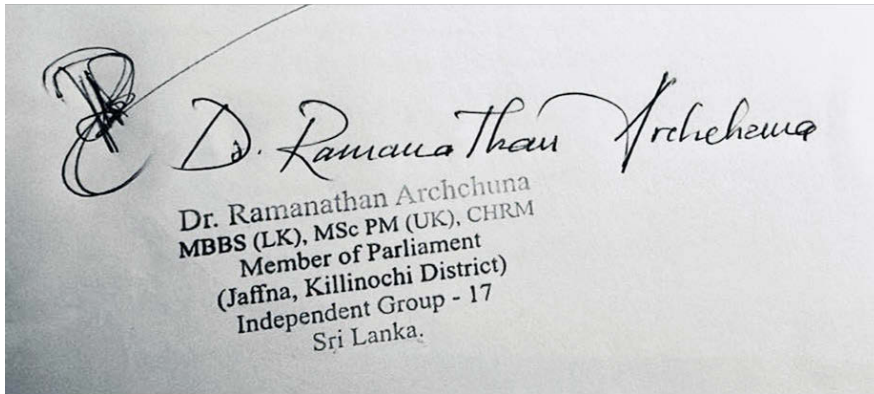 Dr. Ramanathan Archchuna
Dr. Ramanathan Archchuna
MBBS (LK), MSc PM (UK), CHRM
Member of Parliament
(Jaffna, Killinochi District)
Independent Group - 17
Sri Lanka.